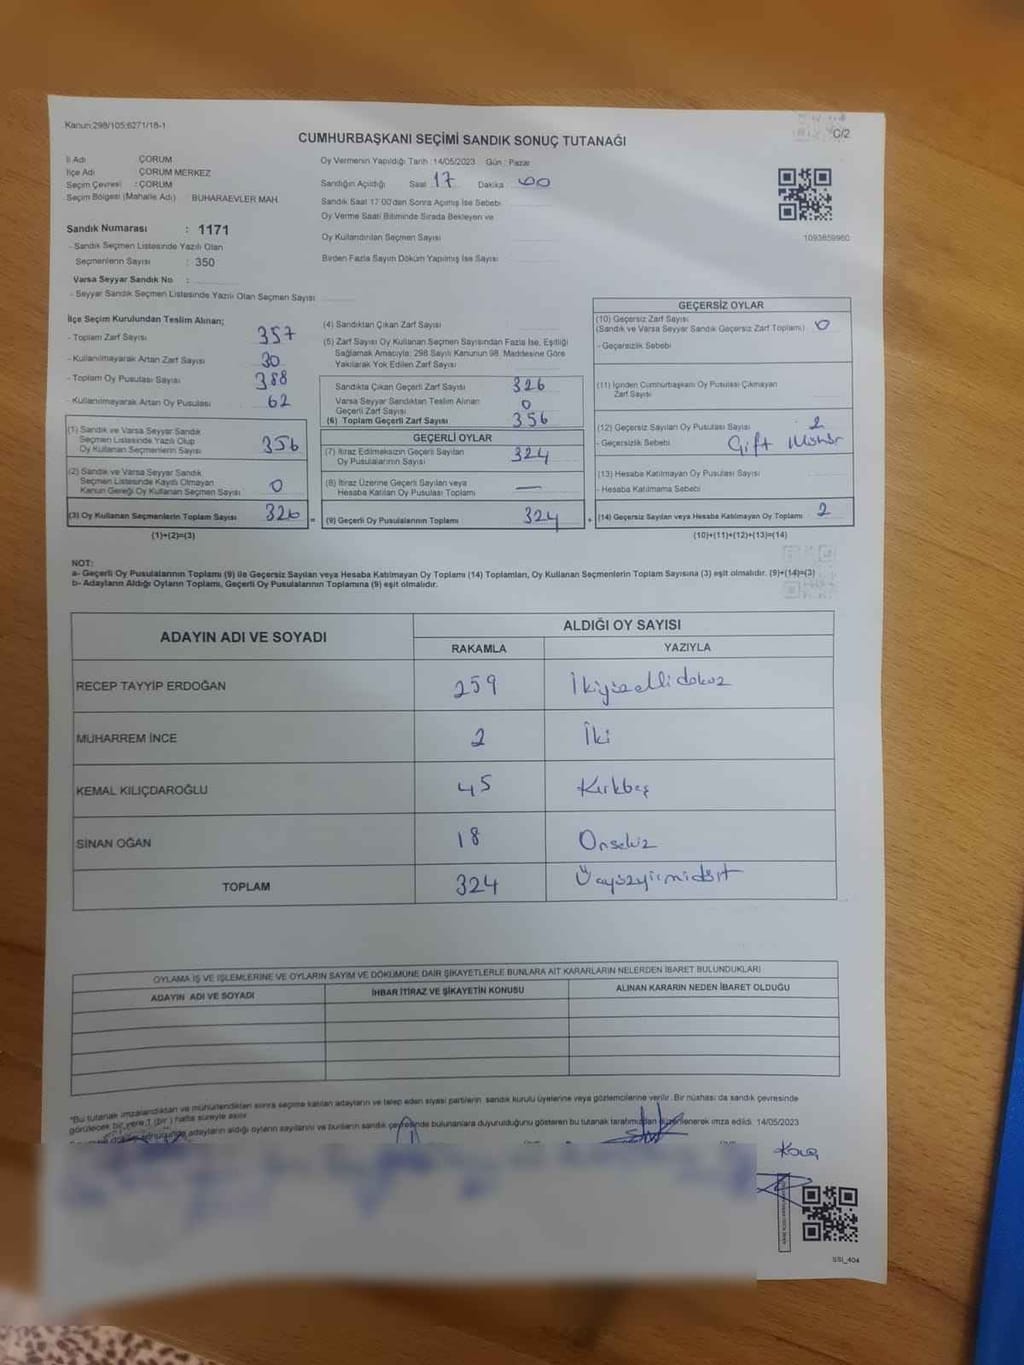 Kanun:298/105;6271/18-1
C/2
CUMHURBAŞKANI SEÇİMİ SANDIK SONUÇ TUTANAĞI
İl Adı ÇORUM
İlçe Adı ÇORUM MERKEZ
Seçim Çevresi : ÇORUM
Seçim Bölgesi (Mahalle Adı) BUHARAEVLER MAH.
Sandık Numarası : 1171
- Sandık Seçmen Listesinde Yazılı Olan
Seçmenlerin Sayısı : 350
Varsa Seyyar Sandık No :
- Seyyar Sandık Seçmen Listesinde Yazılı Olan Seçmen Sayısı
Oy Vermenin Yapıldığı Tarih : 14/05/2023 Gün : Pazar
Sandığın Açıldığı Saat 17 Dakika 00
Sandık Saat 17:00'dan Sonra Açılmış İse Sebebi
Oy Verme Saati Bitiminde Sırada Bekleyen ve
Oy Kullandırılan Seçmen Sayısı
Birden Fazla Sayım Döküm Yapılmış İse Sayısı
1093859960
İlçe Seçim Kurulundan Teslim Alınan;
- Toplam Zarf Sayısı 357
- Kullanılmayarak Artan Zarf Sayısı 30
- Toplam Oy Pusulası Sayısı 388
- Kullanılmayarak Artan Oy Pusulası 62
(1) Sandık ve Varsa Seyyar Sandık
Seçmen Listesinde Yazılı Olup
Oy Kullanan Seçmenlerin Sayısı 356
(2) Sandık ve Varsa Seyyar Sandık
Seçmen Listesinde Kayıtlı Olmayan
Kanun Gereği Oy Kullanan Seçmen Sayısı 0
(3) Oy Kullanan Seçmenlerin Toplam Sayısı 326
(1)+(2)=(3)
(4) Sandıktan Çıkan Zarf Sayısı
(5) Zarf Sayısı Oy Kullanan Seçmen Sayısından Fazla İse, Eşitliği
Sağlamak Amacıyla; 298 Sayılı Kanunun 98. Maddesine Göre
Yakılarak Yok Edilen Zarf Sayısı
Sandıkta Çıkan Geçerli Zarf Sayısı 326
Varsa Seyyar Sandıktan Teslim Alınan
Geçerli Zarf Sayısı 0
(6) Toplam Geçerli Zarf Sayısı 356
GEÇERLİ OYLAR
(7) İtiraz Edilmeksizin Geçerli Sayılan
Oy Pusulalarının Sayısı 324
(8) İtiraz Üzerine Geçerli Sayılan veya
Hesaba Katılan Oy Pusulası Toplamı —
= (9) Geçerli Oy Pusulalarının Toplamı 324
GEÇERSİZ OYLAR
(10) Geçersiz Zarf Sayısı
(Sandık ve Varsa Seyyar Sandık Geçersiz Zarf Toplamı) 0
- Geçersizlik Sebebi
(11) İçinden Cumhurbaşkanı Oy Pusulası Çıkmayan
Zarf Sayısı
(12) Geçersiz Sayılan Oy Pusulası Sayısı 2
- Geçersizlik Sebebi Çift Mühür
(13) Hesaba Katılmayan Oy Pusulası Sayısı
- Hesaba Katılmama Sebebi
+ (14) Geçersiz Sayılan veya Hesaba Katılmayan Oy Toplamı 2
(10)+(11)+(12)+(13)=(14)
NOT:
a- Geçerli Oy Pusulalarının Toplamı (9) ile Geçersiz Sayılan veya Hesaba Katılmayan Oy Toplamı (14) Toplamları, Oy Kullanan Seçmenlerin Toplam Sayısına (3) eşit olmalıdır. (9)+(14)=(3)
b- Adayların Aldığı Oyların Toplamı, Geçerli Oy Pusulalarının Toplamına (9) eşit olmalıdır.
ADAYIN ADI VE SOYADI ALDIĞI OY SAYISI
RAKAMLA YAZIYLA
RECEP TAYYİP ERDOĞAN 259 İkiyüzellidokuz
MUHARREM İNCE 2 İki
KEMAL KILIÇDAROĞLU 45 Kırkbeş
SİNAN OĞAN 18 Onsekiz
TOPLAM 324 Üçyüzyirmidört
OYLAMA İŞ VE İŞLEMLERİNE VE OYLARIN SAYIM VE DÖKÜMÜNE DAİR ŞİKAYETLERLE BUNLARA AİT KARARLARIN NELERDEN İBARET BULUNDUKLARI
ADAYIN ADI VE SOYADI İHBAR İTİRAZ VE ŞİKAYETİN KONUSU ALINAN KARARIN NEDEN İBARET OLDUĞU
*Bu tutanak imzalandıktan ve mühürlendikten sonra seçime katılan adayların ve talep eden siyasi partilerin sandık kurulu üyelerine veya gözlemcilerine verilir. Bir nüshası da sandık çevresinde
görülecek bir yere 1 (bir) hafta süreyle asılır.
adayların aldığı oyların sayılarını ve bunların sandık çevresinde bulunanlara duyurulduğunu gösteren bu tutanak tarafımızdan düzenlenerek imza edildi. 14/05/2023
SSI_404